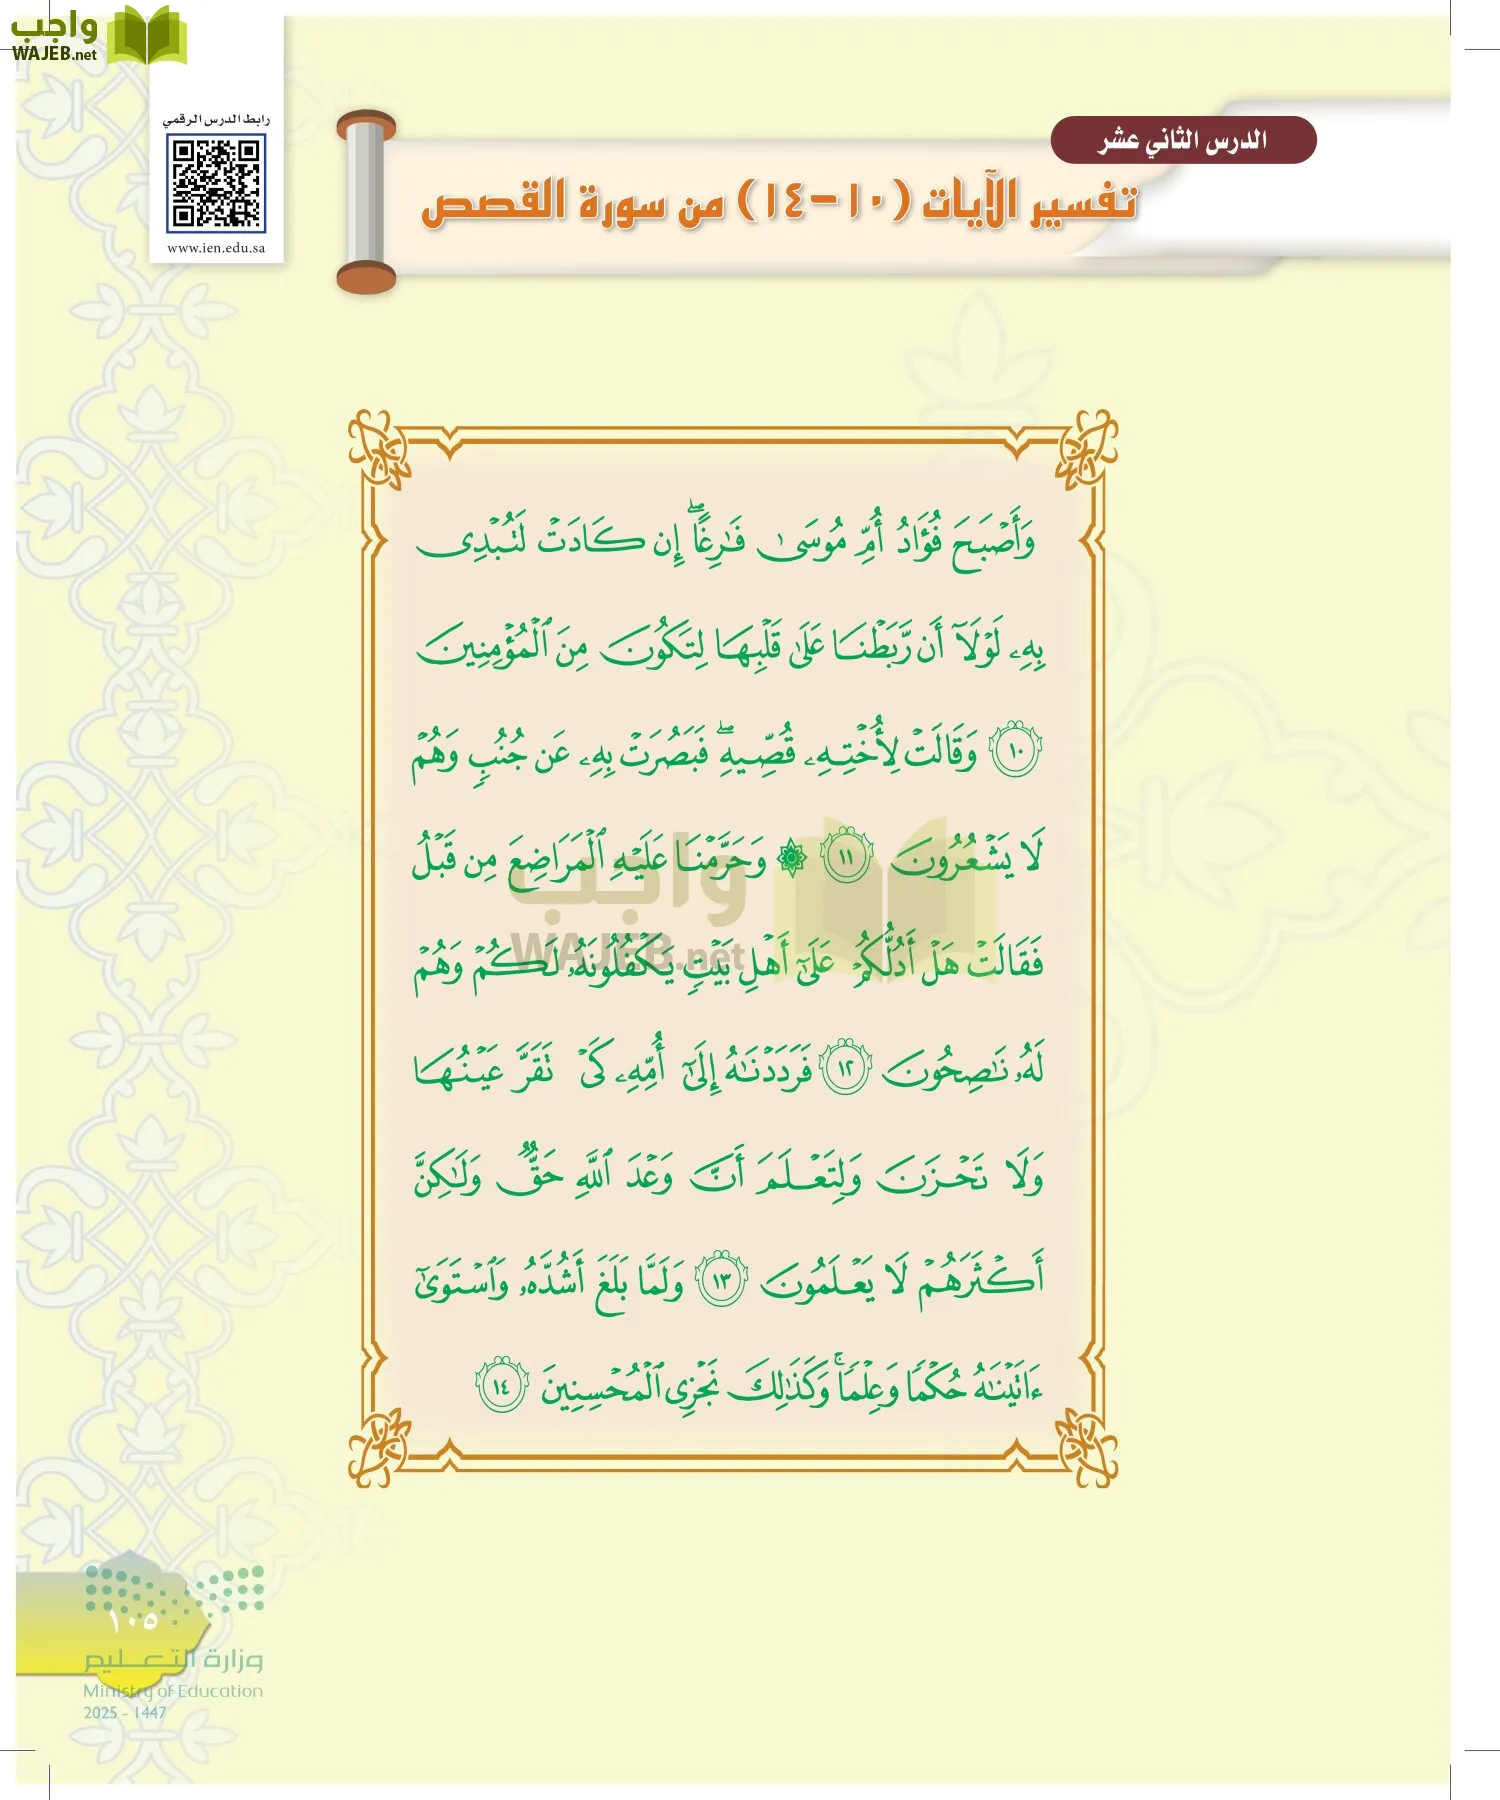 واجب
WAJEB.net
رابط الدرس الرقمي
www.ien.edu.sa
الدرس الثاني عشر
تفسير الآيات (١٠-١٤) من سورة القصص
وَأَصۡبَحَ فُؤَادُ أُمِّ مُوسَىٰ فَٰرِغًاۖ إِن كَادَتۡ لَتُبۡدِي
بِهِۦ لَوۡلَآ أَن رَّبَطۡنَا عَلَىٰ قَلۡبِهَا لِتَكُونَ مِنَ ٱلۡمُؤۡمِنِينَ
١٠ وَقَالَتۡ لِأُخۡتِهِۦ قُصِّيهِۖ فَبَصُرَتۡ بِهِۦ عَن جُنُبٖ وَهُمۡ
لَا يَشۡعُرُونَ ١١ ۞ وَحَرَّمۡنَا عَلَيۡهِ ٱلۡمَرَاضِعَ مِن قَبۡلُ
فَقَالَتۡ هَلۡ أَدُلُّكُمۡ عَلَىٰٓ أَهۡلِ بَيۡتٖ يَكۡفُلُونَهُۥ لَكُمۡ وَهُمۡ
لَهُۥ نَٰصِحُونَ ١٢ فَرَدَدۡنَٰهُ إِلَىٰٓ أُمِّهِۦ كَيۡ تَقَرَّ عَيۡنُهَا
وَلَا تَحۡزَنَ وَلِتَعۡلَمَ أَنَّ وَعۡدَ ٱللَّهِ حَقّٞ وَلَٰكِنَّ
أَكۡثَرَهُمۡ لَا يَعۡلَمُونَ ١٣ وَلَمَّا بَلَغَ أَشُدَّهُۥ وَٱسۡتَوَىٰٓ
ءَاتَيۡنَٰهُ حُكۡمٗا وَعِلۡمٗاۚ وَكَذَٰلِكَ نَجۡزِي ٱلۡمُحۡسِنِينَ ١٤
واجب
WAJEB.net
١٠٥
وزارة التعليم
Ministry of Education
2025 - 1447